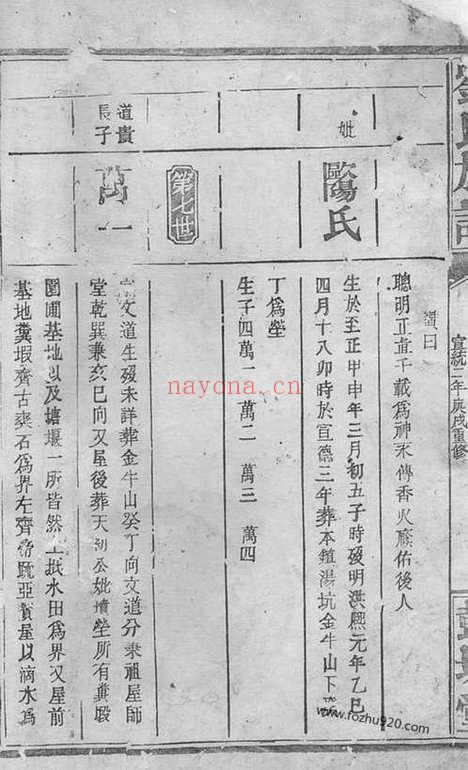 宣統二年庚戌重修
贊曰
聰明正直千載為神永傳香火廕佑後人
妣
歐陽氏
生於至正甲申年三月初五子時歿明洪熙元年乙巳
四月十八卯時於宣德三年葬本鎮湯坑金牛山下
丁為塋
生子四萬一 萬二 萬三 萬四
第七世
道貴
長子
萬一
文道生歿未詳葬金牛山癸丁向文道分乘祖屋師
堂乾巽兼亥巳向又屋後葬天初公妣墳塋所有糞塅
園圃基地以及塘堰一所皆然上抵水田為界又屋前
基地糞塅齊古塋石為界左齊 亞賢屋以滴水為
nayona.cn
www.fozhu920.com